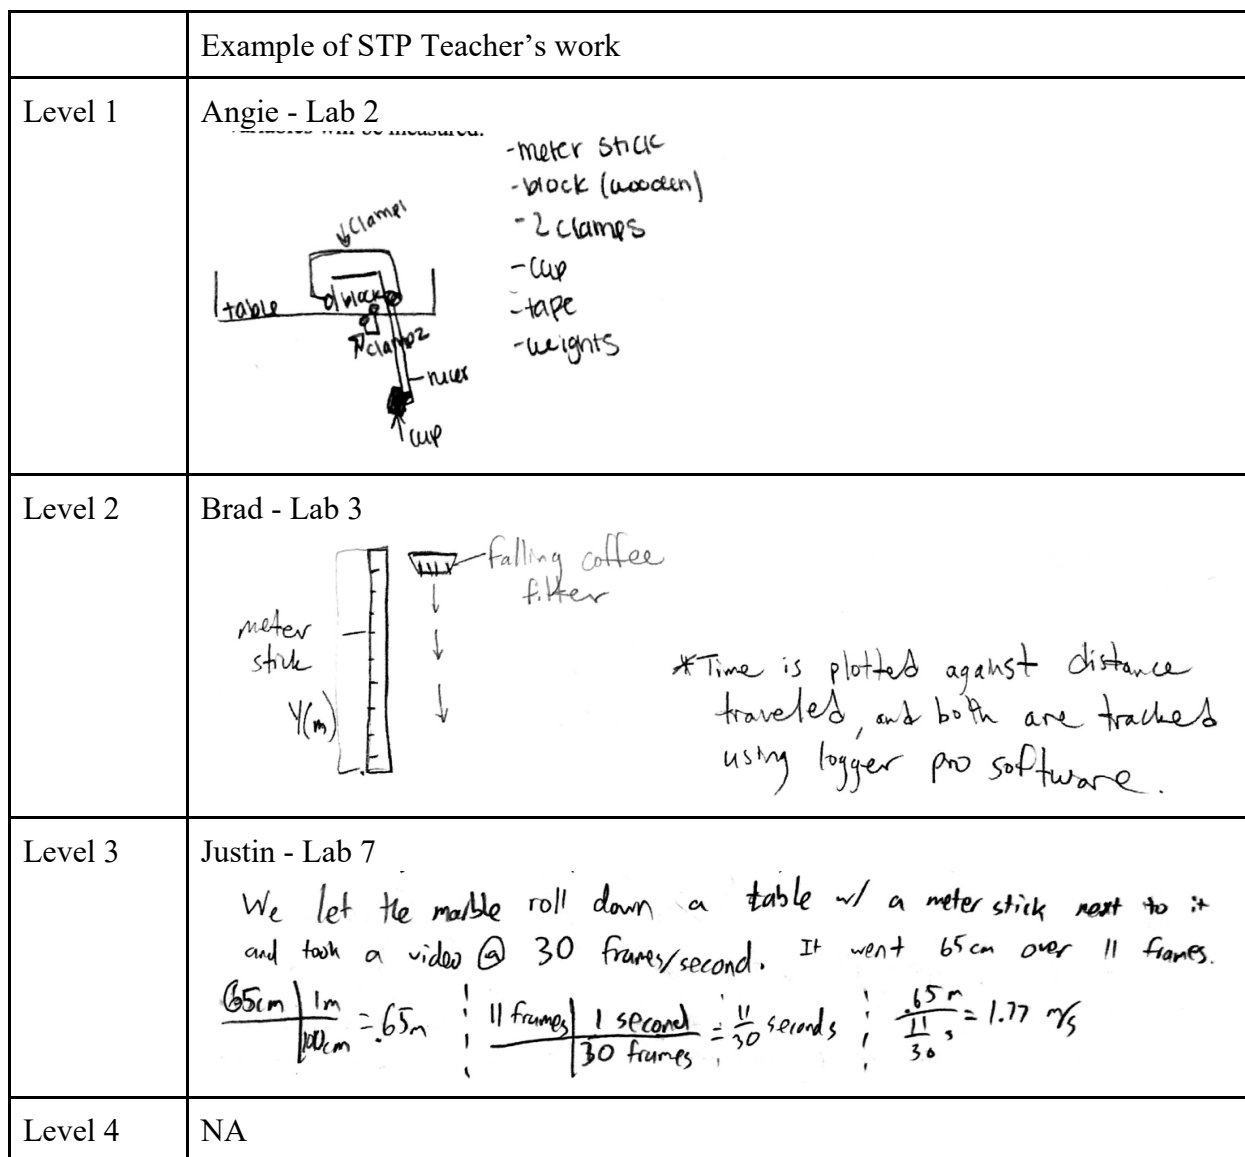 Example of STP Teacher's work
Level 1
Angie - Lab 2
variables will be measured.
-meter stick
-block (wooden)
-2 clamps
-cup
-tape
-weights
clamp1
table
block
clamp2
ruler
cup
Level 2
Brad - Lab 3
falling coffee
filter
meter
stick
Y(m)
*Time is plotted against distance
traveled, and both are tracked
using logger pro software.
Level 3
Justin - Lab 7
We let the marble roll down a table w/ a meter stick next to it
and took a video @ 30 frames/second. It went 65cm over 11 frames.
65cm | 1m / 100cm = .65m ¦ 11 frames | 1 second / 30 frames = 11/30 seconds ¦ .65m / 11/30 s = 1.77 m/s
Level 4
NA